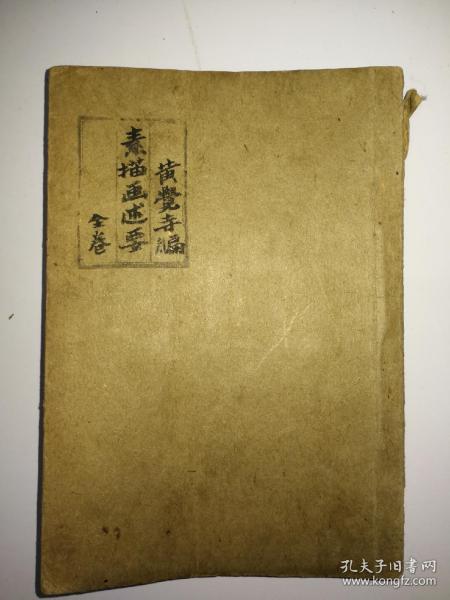 黄覺寺編
素描画述要
全卷
孔夫子旧书网
www.kongfz.com